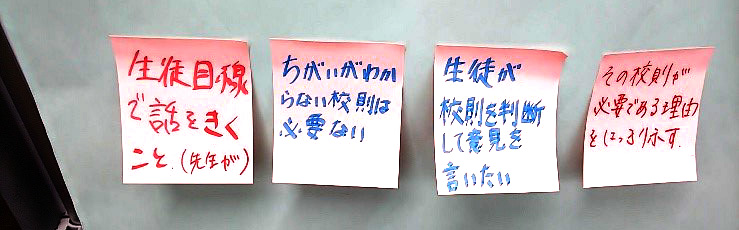 生徒目線
で話をきく
こと.(先生が)
ちがいがわか
らない校則は
必要ない
生徒が
校則を判断
して意見を
言いたい
その校則が
必要である理由
をはっきり示す.